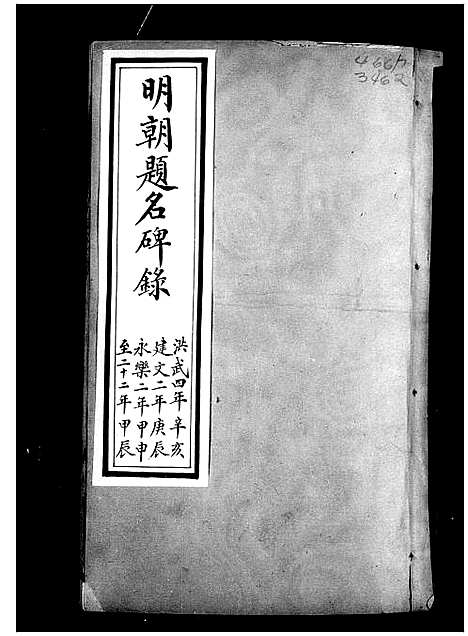 明朝題名碑錄
洪武四年辛亥
建文二年庚辰
永樂二年甲申
至二十二年甲辰
4667
3462